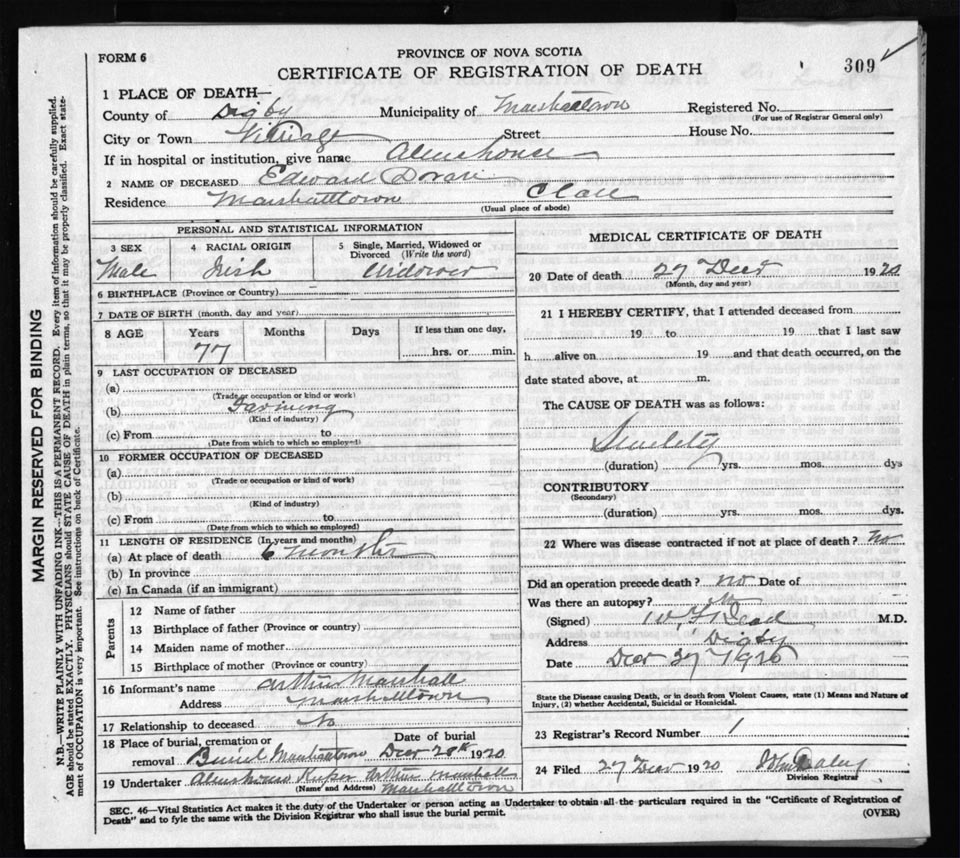 FORM 6
PROVINCE OF NOVA SCOTIA
CERTIFICATE OF REGISTRATION OF DEATH
309
1 PLACE OF DEATH—
County of Digby Municipality of Marshalltown Registered No.
(For use of Registrar General only)
City or Town Village Street House No.
If in hospital or institution, give name Almshouse
2 NAME OF DECEASED Edward Doran
Residence Marshalltown Clare
(Usual place of abode)
PERSONAL AND STATISTICAL INFORMATION
3 SEX 4 RACIAL ORIGIN 5 Single, Married, Widowed or Divorced (Write the word)
Male Irish Widower
6 BIRTHPLACE (Province or Country)
7 DATE OF BIRTH (month, day and year)
8 AGE Years Months Days If less than one day,
77 hrs. or min.
9 LAST OCCUPATION OF DECEASED
(a)
(Trade or occupation or kind or work)
(b) Farming
(Kind of industry)
(c) From to
(Date from which to which so employed)
10 FORMER OCCUPATION OF DECEASED
(a)
(Trade or occupation or kind of work)
(b)
(Kind of industry)
(c) From to
(Date from which to which so employed)
11 LENGTH OF RESIDENCE (In years and months)
(a) At place of death 6 months
(b) In province
(c) In Canada (if an immigrant)
Parents
12 Name of father
13 Birthplace of father (Province or country)
14 Maiden name of mother
15 Birthplace of mother (Province or country)
16 Informant's name Arthur Marshall
Address Marshalltown
17 Relationship to deceased No
18 Place of burial, cremation or removal Date of burial
Marshalltown Decr 28th 1920
19 Undertaker Almshouse Keeper Arthur Marshall
(Name and Address) Marshalltown
MEDICAL CERTIFICATE OF DEATH
20 Date of death 27 Decr 1920
(Month, day and year)
21 I HEREBY CERTIFY, that I attended deceased from
19 to 19 that I last saw
h alive on 19 and that death occurred, on the
date stated above, at m.
The CAUSE OF DEATH was as follows:
Senility
(duration) yrs. mos. dys
CONTRIBUTORY
(Secondary)
(duration) yrs. mos. dys.
22 Where was disease contracted if not at place of death? No
Did an operation precede death? no Date of
Was there an autopsy? No
(Signed) W. F. Read M.D.
Address Digby
Date Decr 27 1920
State the Disease causing Death, or in death from Violent Causes, state (1) Means and Nature of
Injury, (2) whether Accidental, Suicidal or Homicidal.
23 Registrar's Record Number 1
24 Filed 27 Decr 1920
Division Registrar
SEC. 46—Vital Statistics Act makes it the duty of the Undertaker or person acting as Undertaker to obtain all the particulars required in the "Certificate of Registration of
Death" and to fyle the same with the Division Registrar who shall issue the burial permit. (OVER)
MARGIN RESERVED FOR BINDING
N.B.—WRITE PLAINLY WITH UNFADING INK—THIS IS A PERMANENT RECORD. Every item of information should be carefully supplied.
AGE should be stated EXACTLY. PHYSICIANS should STATE CAUSE OF DEATH in plain terms, so that it may be properly classified. Exact state-
ment of OCCUPATION is very important. See instructions on back of Certificate.